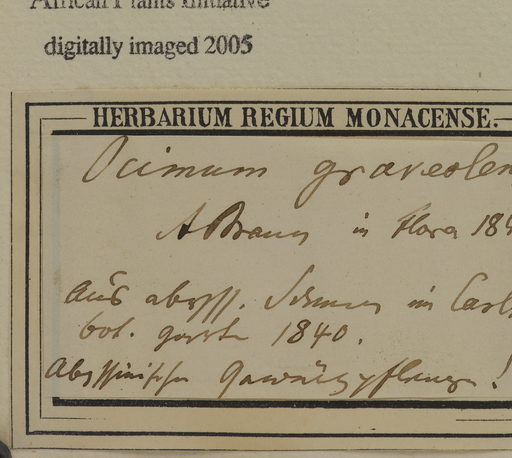 African Plants Initiative
digitally imaged 2005
HERBARIUM REGIUM MONACENSE.
Ocimum graveolen
A Braun in Flora 184
aus abyss. Samen im Carls
bot. garten 1840.
Abyssinische Gewürzpflanze!